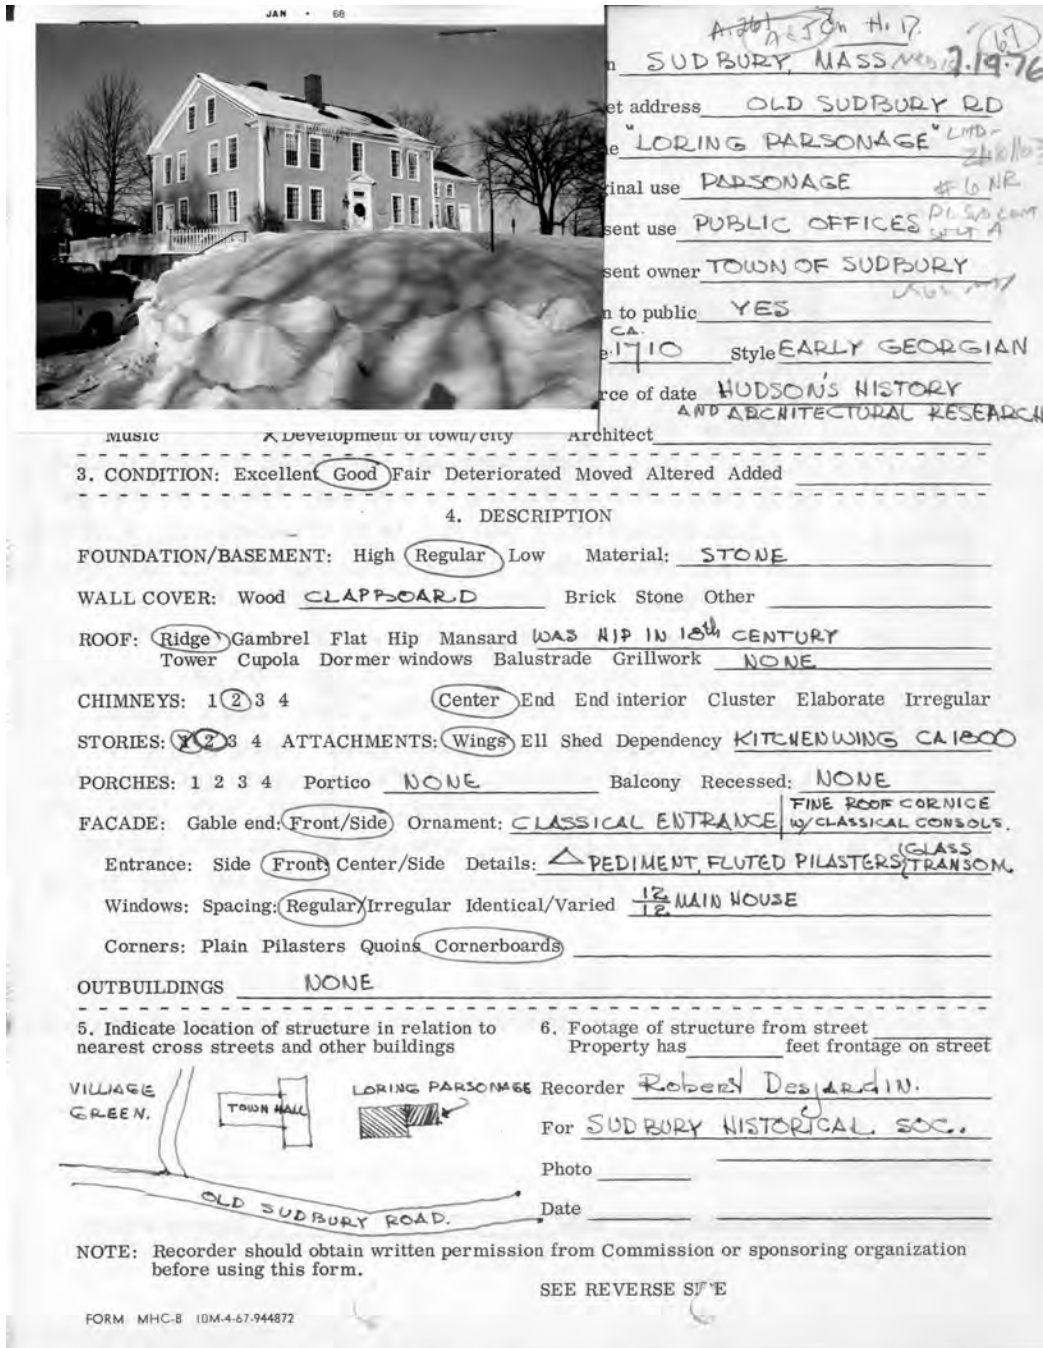 JAN • 68
On H. 17.
67
SUDBURY, MASS 7.19.76
et address OLD SUDBURY RD
"LORING PARSONAGE"
inal use PARSONAGE
#6 NR
sent use PUBLIC OFFICES
sent owner TOWN OF SUDBURY
n to public YES
CA.
e 1710 Style EARLY GEORGIAN
rce of date HUDSON'S HISTORY
AND ARCHITECTURAL RESEARCH
Music X Development of town/city Architect
3. CONDITION: Excellent Good Fair Deteriorated Moved Altered Added
4. DESCRIPTION
FOUNDATION/BASEMENT: High Regular Low Material: STONE
WALL COVER: Wood CLAPBOARD Brick Stone Other
ROOF: Ridge Gambrel Flat Hip Mansard WAS HIP IN 18th CENTURY
Tower Cupola Dormer windows Balustrade Grillwork NONE
CHIMNEYS: 1 2 3 4 Center End End interior Cluster Elaborate Irregular
STORIES: 1 2 3 4 ATTACHMENTS: Wings Ell Shed Dependency KITCHEN WING CA 1800
PORCHES: 1 2 3 4 Portico NONE Balcony Recessed: NONE
FINE ROOF CORNICE
FACADE: Gable end: Front/Side Ornament: CLASSICAL ENTRANCE W/CLASSICAL CONSOLS.
GLASS
Entrance: Side Front: Center/Side Details: △ PEDIMENT, FLUTED PILASTERS, TRANSOM.
Windows: Spacing: Regular/Irregular Identical/Varied 12/12 MAIN HOUSE
Corners: Plain Pilasters Quoins Cornerboards
OUTBUILDINGS NONE
5. Indicate location of structure in relation to
nearest cross streets and other buildings
6. Footage of structure from street
Property has feet frontage on street
VILLIAGE
GREEN.
TOWN HALL
LORING PARSONAGE
OLD SUDBURY ROAD.
Recorder Robert Desjardin.
For SUDBURY HISTORICAL SOC.
Photo
Date
NOTE: Recorder should obtain written permission from Commission or sponsoring organization
before using this form.
SEE REVERSE SIDE
FORM MHC-B 10M-4-67-944872